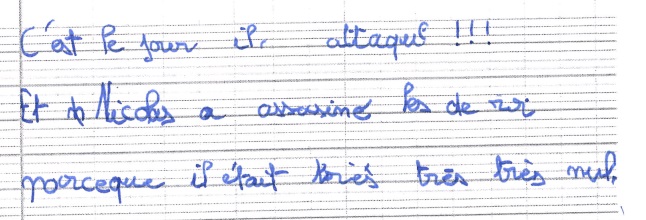 C'est le jour il attaque !!!
Et Nicolas a assasiné les de roi
parceque il était très très très nul.